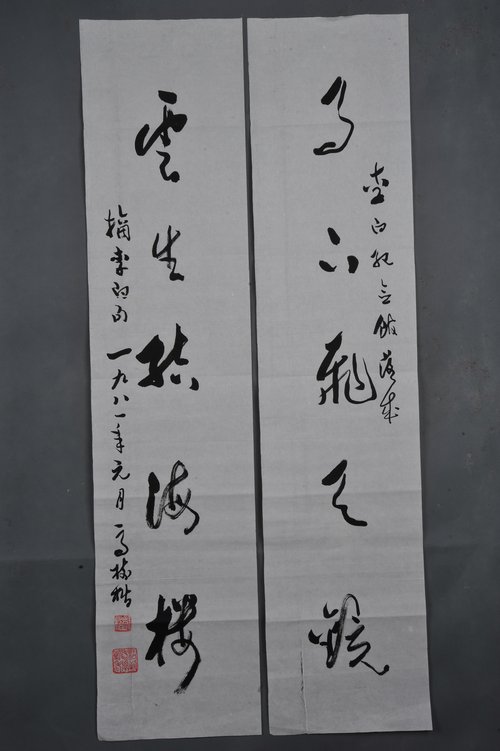 李白紀念館落成
月下飛天鏡
雲生結海樓
摘李白句 一九八一年元月